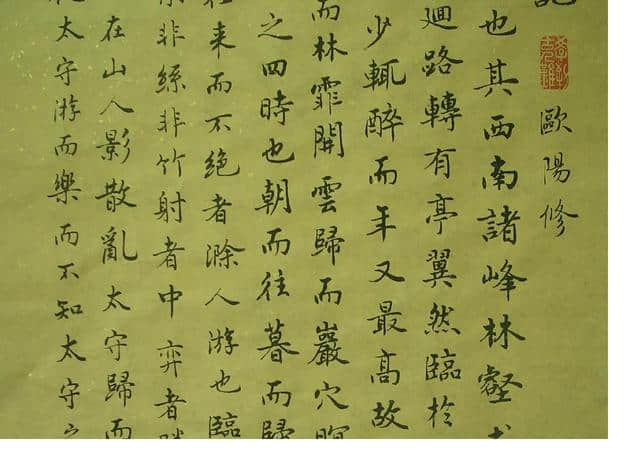 歐陽修
也其西南諸峰林壑
廻路轉有亭翼然臨於
少輒醉而年又最高故
而林霏開雲歸而巖穴暝
之四時也朝而往暮而歸
來而不絕者滁人游也臨
非絲非竹射者中弈者
在山人影散亂太守歸而
太守游而樂而不知太守之